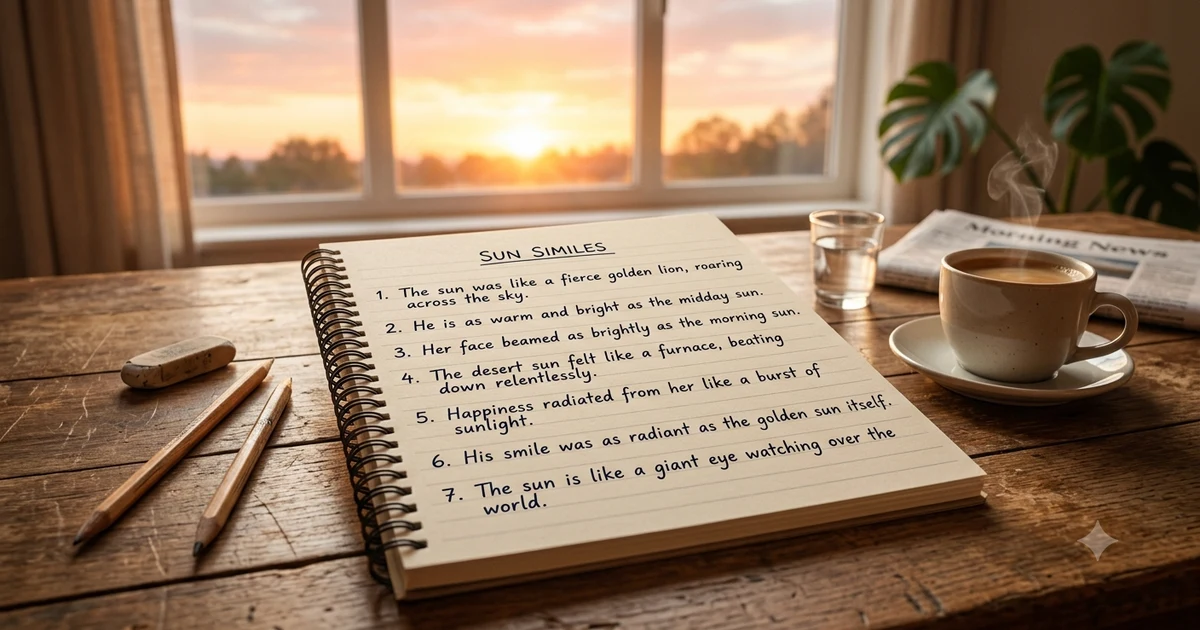 SUN SIMILES
1. The sun was like a fierce golden lion, roaring
across the sky.
2. He is as warm and bright as the midday sun.
3. Her face beamed as brightly as the morning sun.
4. The desert sun felt like a furnace, beating
down relentlessly.
5. Happiness radiated from her like a burst of
sunlight.
6. His smile was as radiant as the golden sun itself.
7. The sun is like a giant eye watching over the
world.
Morning News